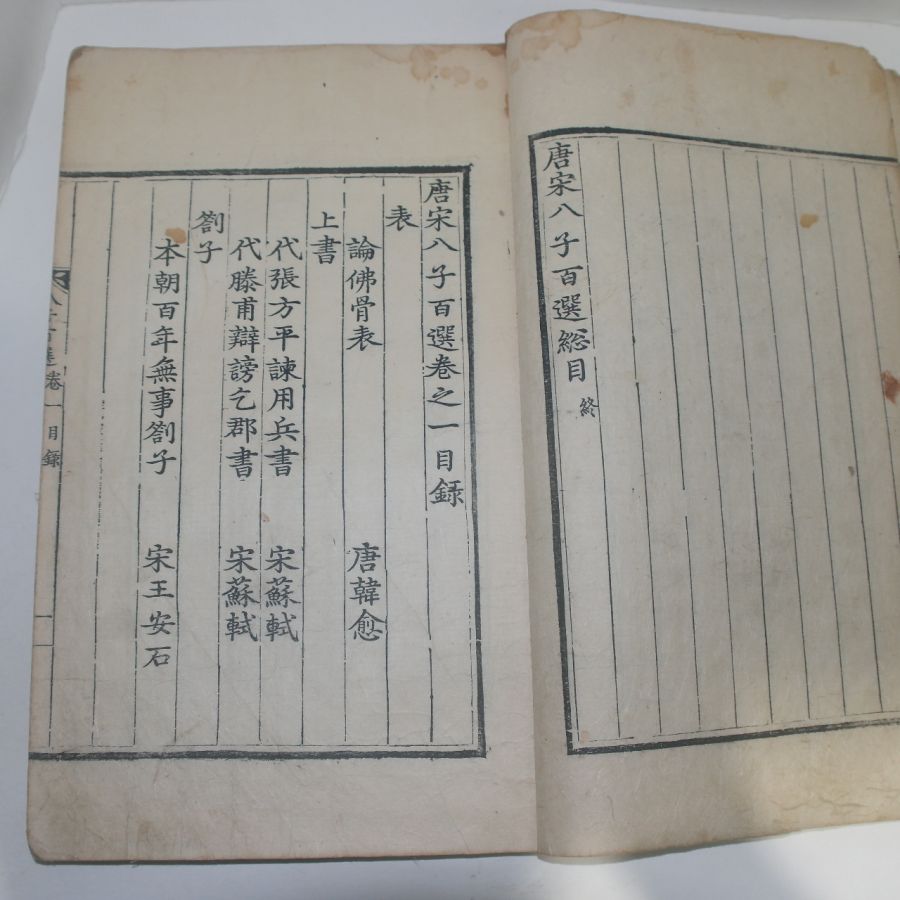 唐宋八子百選総目 終
唐宋八子百選卷之一目録
表
論佛骨表 唐韓愈
上書
代張方平諫用兵書 宋蘇軾
代滕甫辯謗乞郡書 宋蘇軾
劄子
本朝百年無事劄子 宋王安石
八子百選卷一目録 一